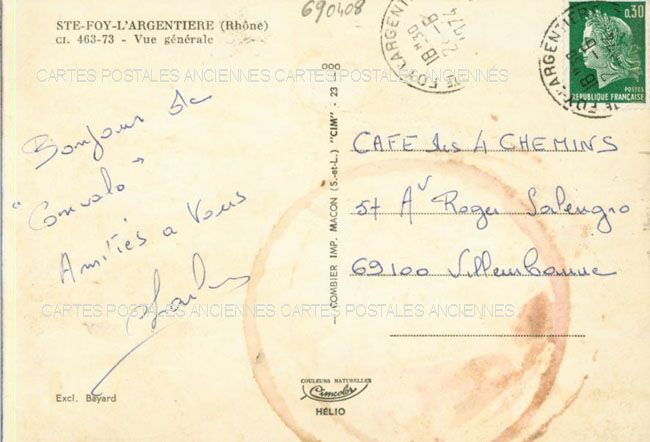 STE-FOY-L'ARGENTIERE (Rhône)
Cl. 463-73 - Vue générale
690408
0,30
POSTES
REPUBLIQUE FRANÇAISE
CARTES POSTALES ANCIENNES CARTES POSTALES ANCIENNES
Bonjour de
"Convalo"
Amitiés a Vous
CAFE des 4 CHEMINS
57 Av Roger Salengro
69100 Villeurbanne
COMBIER IMP. MACON (S.-et-L.) "CIM"
CARTES POSTALES ANCIENNES CARTES POSTALES ANCIENNES
Excl. Bayard
COULEURS NATURELLES
Cimcolor
HÉLIO